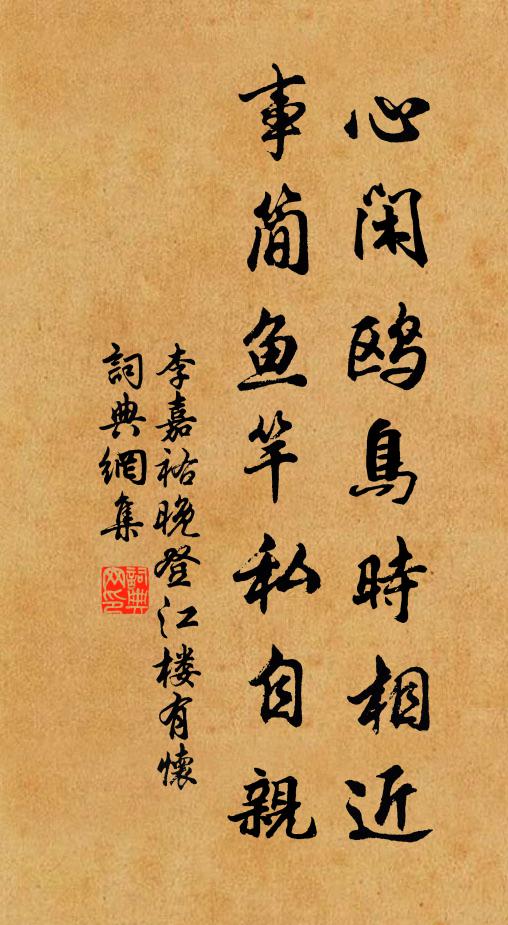 心闲鸥鸟時相近
事简鱼竿私自親
李嘉祐晚登江楼有懷
詞典網集
詞典
网印